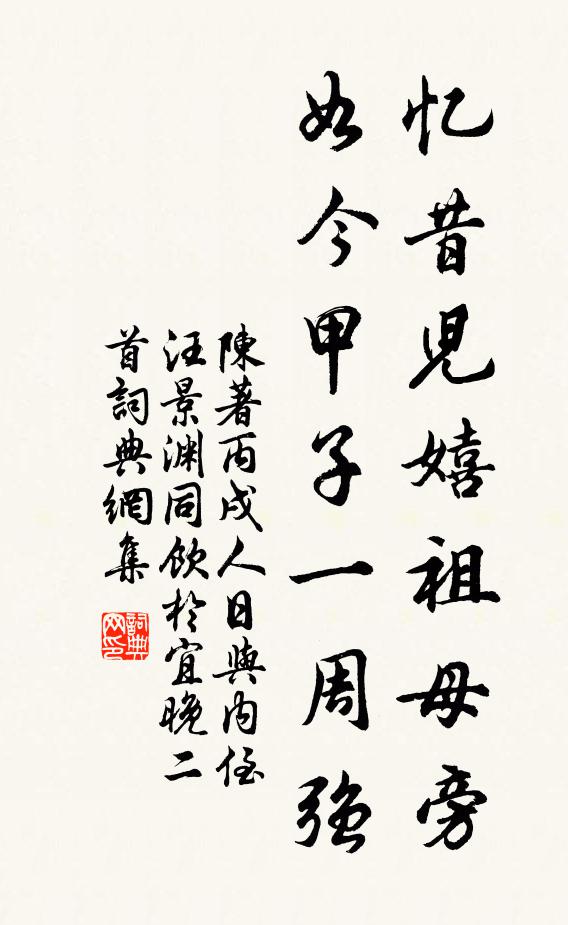 忆昔児嬉祖母旁
如今甲子一周强
陳著丙戌人日與内侄
汪景渊同飲於宜晚二
首詞典網集
詞典网印